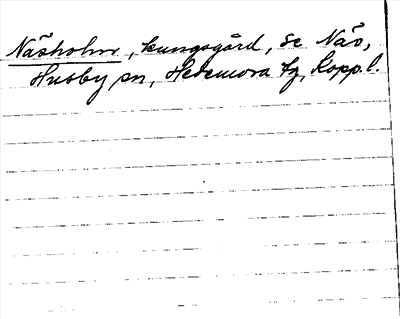 Näsholm, kungsgård, se Näs,
Husby sn, Hedemora tg, Kopp. l.